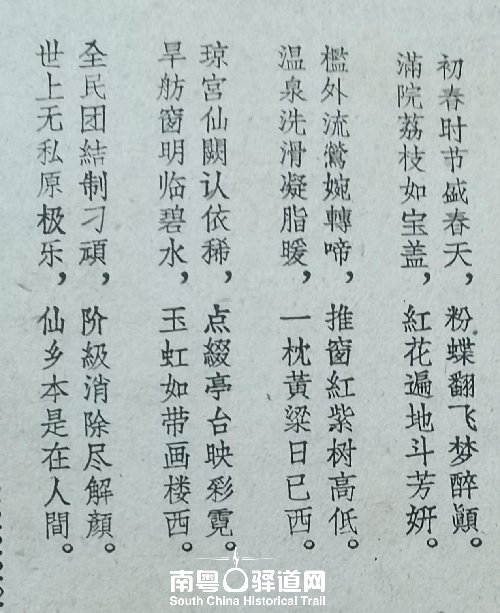 初春时节盛春天，粉蝶翻飞梦醉顚。
滿院荔枝如宝盖，紅花遍地斗芳妍。
檻外流鶯婉轉啼，推窗紅紫树高低。
温泉洗滑凝脂暖，一枕黃粱日已西。
琼宮仙闕认依稀，点綴亭台映彩霓。
旱舫窗明临碧水，玉虹如带画楼西。
全民团結制刁頑，阶級消除尽解顏。
世上无私原极乐，仙乡本是在人間。
南粤驿道网
South China Historical Trail